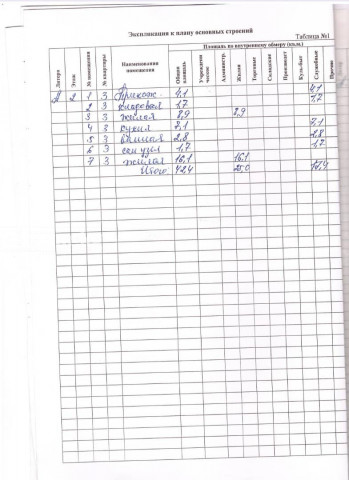 Экспликация к плану основных строений
Таблица №1
Литера
Этаж
№ помещения
№ квартиры
Наименование помещения
Общая площадь
Площадь по внутреннему обмеру (кв.м.)
Учрежден ческие
Администр.
Жилая
Торговые
Складские
Производст
Культ-быт
Служебные
Прочие
А 2 1 3 Прихож. 4,1 4,1
2 3 кладовая 1,7 1,7
3 3 жилая 8,9 8,9
4 3 кухня 7,1 7,1
5 3 ванная 2,8 2,8
6 3 сан узел 1,7 1,7
7 3 жилая 16,1 16,1
Итого 42,4 25,0 17,4